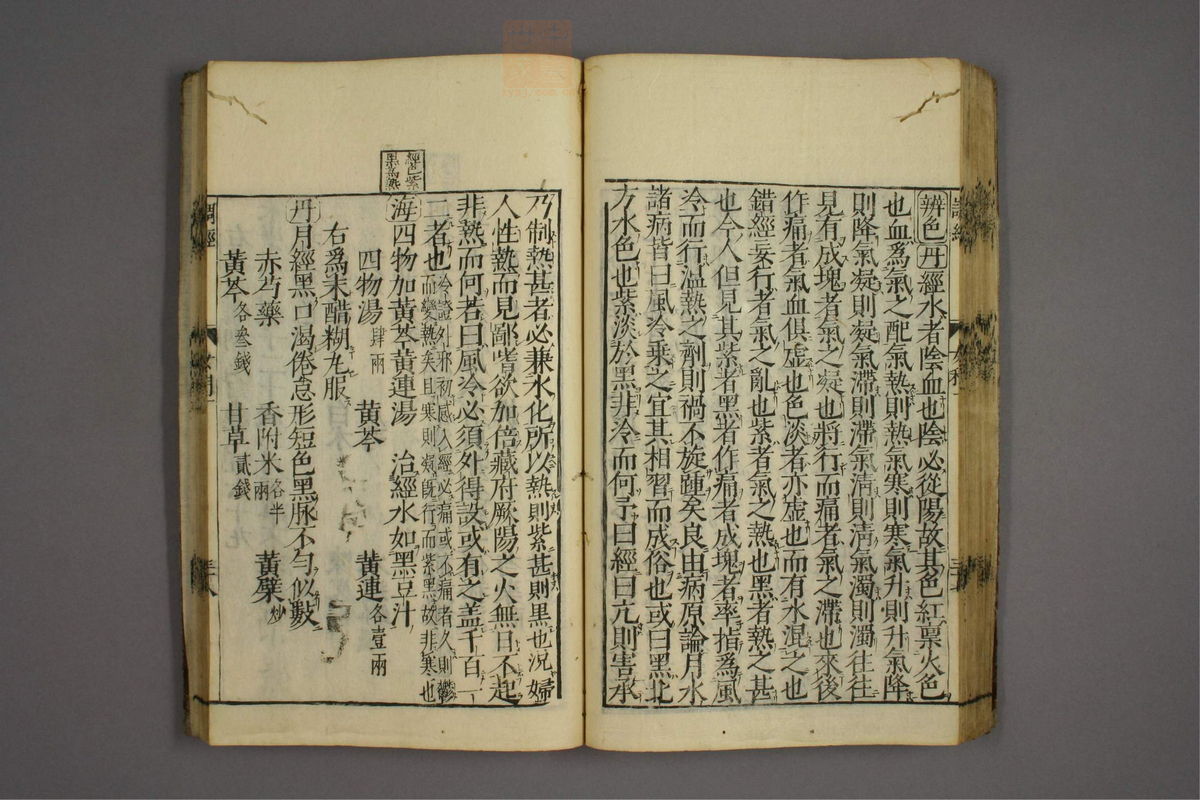 辨色 丹 經水者陰血也陰必從陽故其色紅稟火色
也血爲氣之配氣熱則熱氣寒則寒氣升則升氣降
則降氣凝則凝氣滯則滯氣清則清氣濁則濁往往
見有成塊者氣之凝也將行而痛者氣之滯也來後
作痛者氣血俱虛也色淡者亦虛也而有水混之也
錯經妄行者氣之亂也紫者氣之熱也黑者熱之甚
也今人但見其紫者黑者作痛者成塊者率指爲風
冷而行温熱之劑則禍不旋踵矣良由病原論月水
諸病皆曰風冷乘之宜其相習而成俗也或曰黑北
方水色也紫淡於黑非冷而何予曰經曰亢則害承
經色紫
黑爲熱
乃制熱甚者必兼水化所以熱則紫甚則黑也況婦
人性熱而見鄙嗜欲加倍藏府厥陽之火無日不起
非熱而何若曰風冷必須外得設或有之盖千百一
二者也 冷證外邪初感入經必痛或不痛者久則鬱
而變熱矣且寒則凝既行而紫黑故非寒也
海 四物加黃芩黃連湯 治經水如黑豆汁
四物湯 肆兩 黃芩 黃連 各壹兩
右爲末醋糊丸服
丹 月經黑口渴倦怠形短色黑脉不勻似數
赤芍藥 香附米 各半兩 黃檗 炒
黃芩 各叁錢 甘草 貳錢